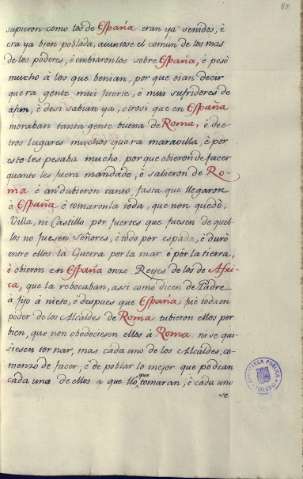 supieron como los de España eran ya venidos, é
era ya bien poblada, ayuntose el comun de los mas
de los poderes, é embiaron los sobre España, é pesó
mucho á los que benian, por que oian decir
que era gente mui fuerte, é mui sufridores de
afan, é desi sabian ya, otrosi que en España
moraban tanta gente buena de Roma, é de
tros lugares muchos que era maravilla, é por
esto les pesaba mucho, por que obieron de facer
quanto les fuera mandado, é salieron de Ro-
ma é andubieron tanto fasta que llegaron
á España é tomaronla toda, que non quedó
Villa, ni Castillo por fuertes que fuesen de que ellos
no fuesen Señores, é todo por espada, é duró
entre ellos la Guerra por la mar é por la tierra,
é obieron en España onze Reyes de los de Afri-
ca, que la rebocaban, asi como dicen de Padre
á fijo á nieto, é despues que España fué toda en
poder de los Alcaldes de Roma tubieron ellos por
bien, que non obedeciesen ellos á Roma ni se qui-
siesen tornar, mas cada uno de los Alcaldes, co-
menzó de facer, é de poblar lo mejor que podian
cada uno de ellos a que lo que tomaran, é cada uno
se